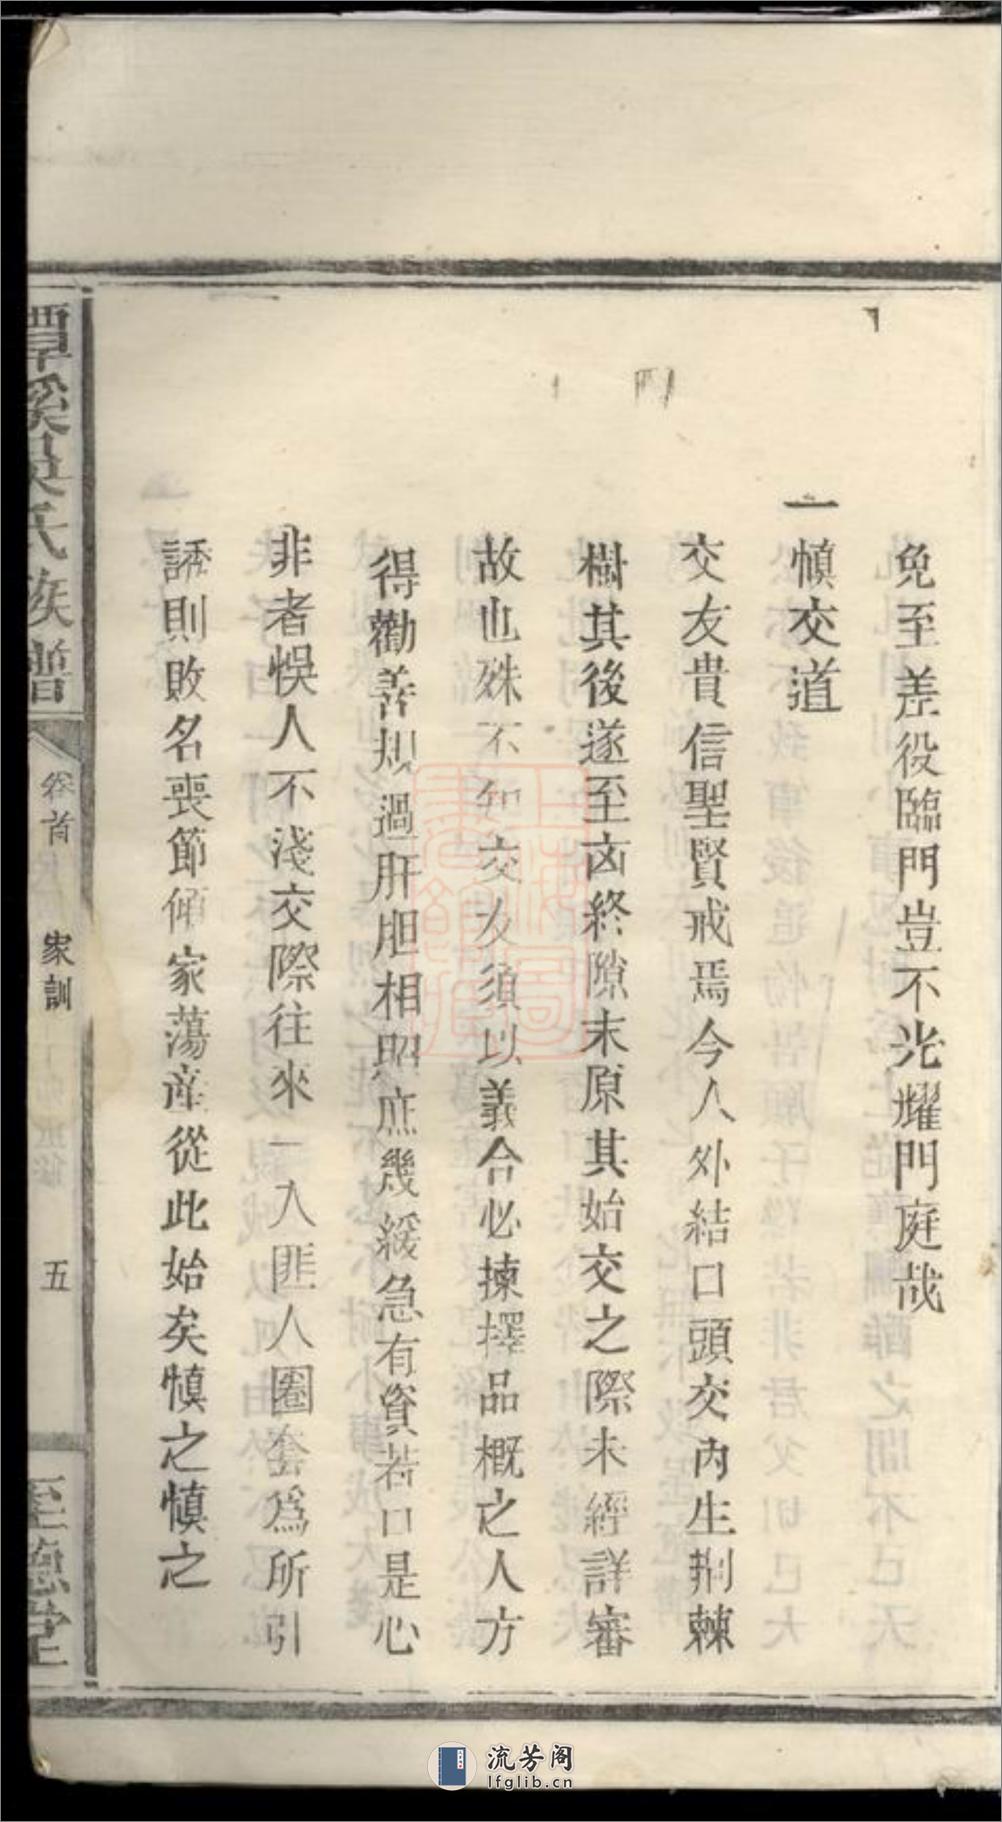 免至差役臨門豈不光耀門庭哉
一慎交道
交友貴信聖賢戒焉今人外結口頭交內生荆棘
樹其後遂至凶終隙末原其始交之際未經詳審
故也殊不知交友須以義合必揀擇品概之人方
得勸善規過肝胆相照庶幾緩急有資若口是心
非者悞人不淺交際往來一入匪人圈套爲所引
誘則敗名喪節傾家蕩產從此始矣慎之慎之
潭溪吳氏族譜
卷首
家訓
五
至德堂
上海圖書館藏
流芳阁
lfglib.cn